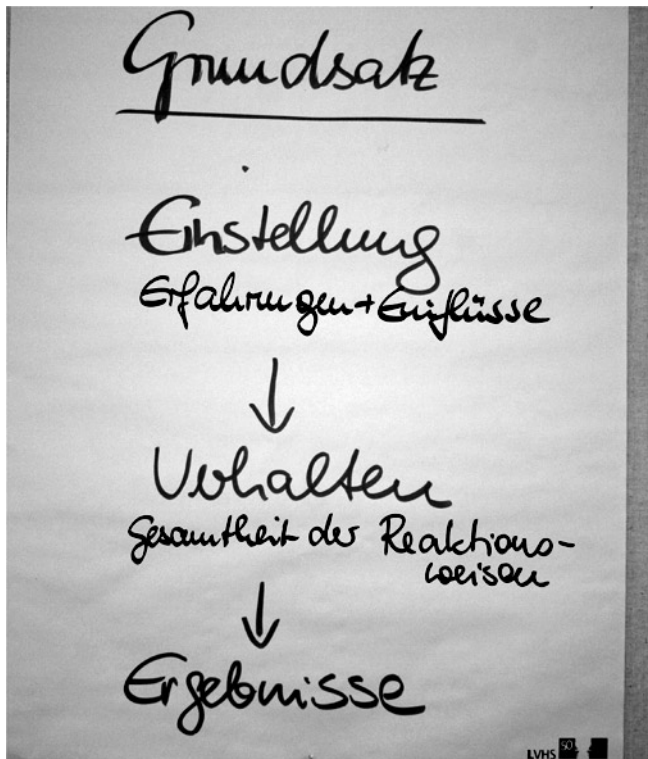 Grundsatz
Einstellung
Erfahrungen + Einflüsse
↓
Verhalten
Gesamtheit der Reaktions-
weisen
↓
Ergebnisse
LVHS
50